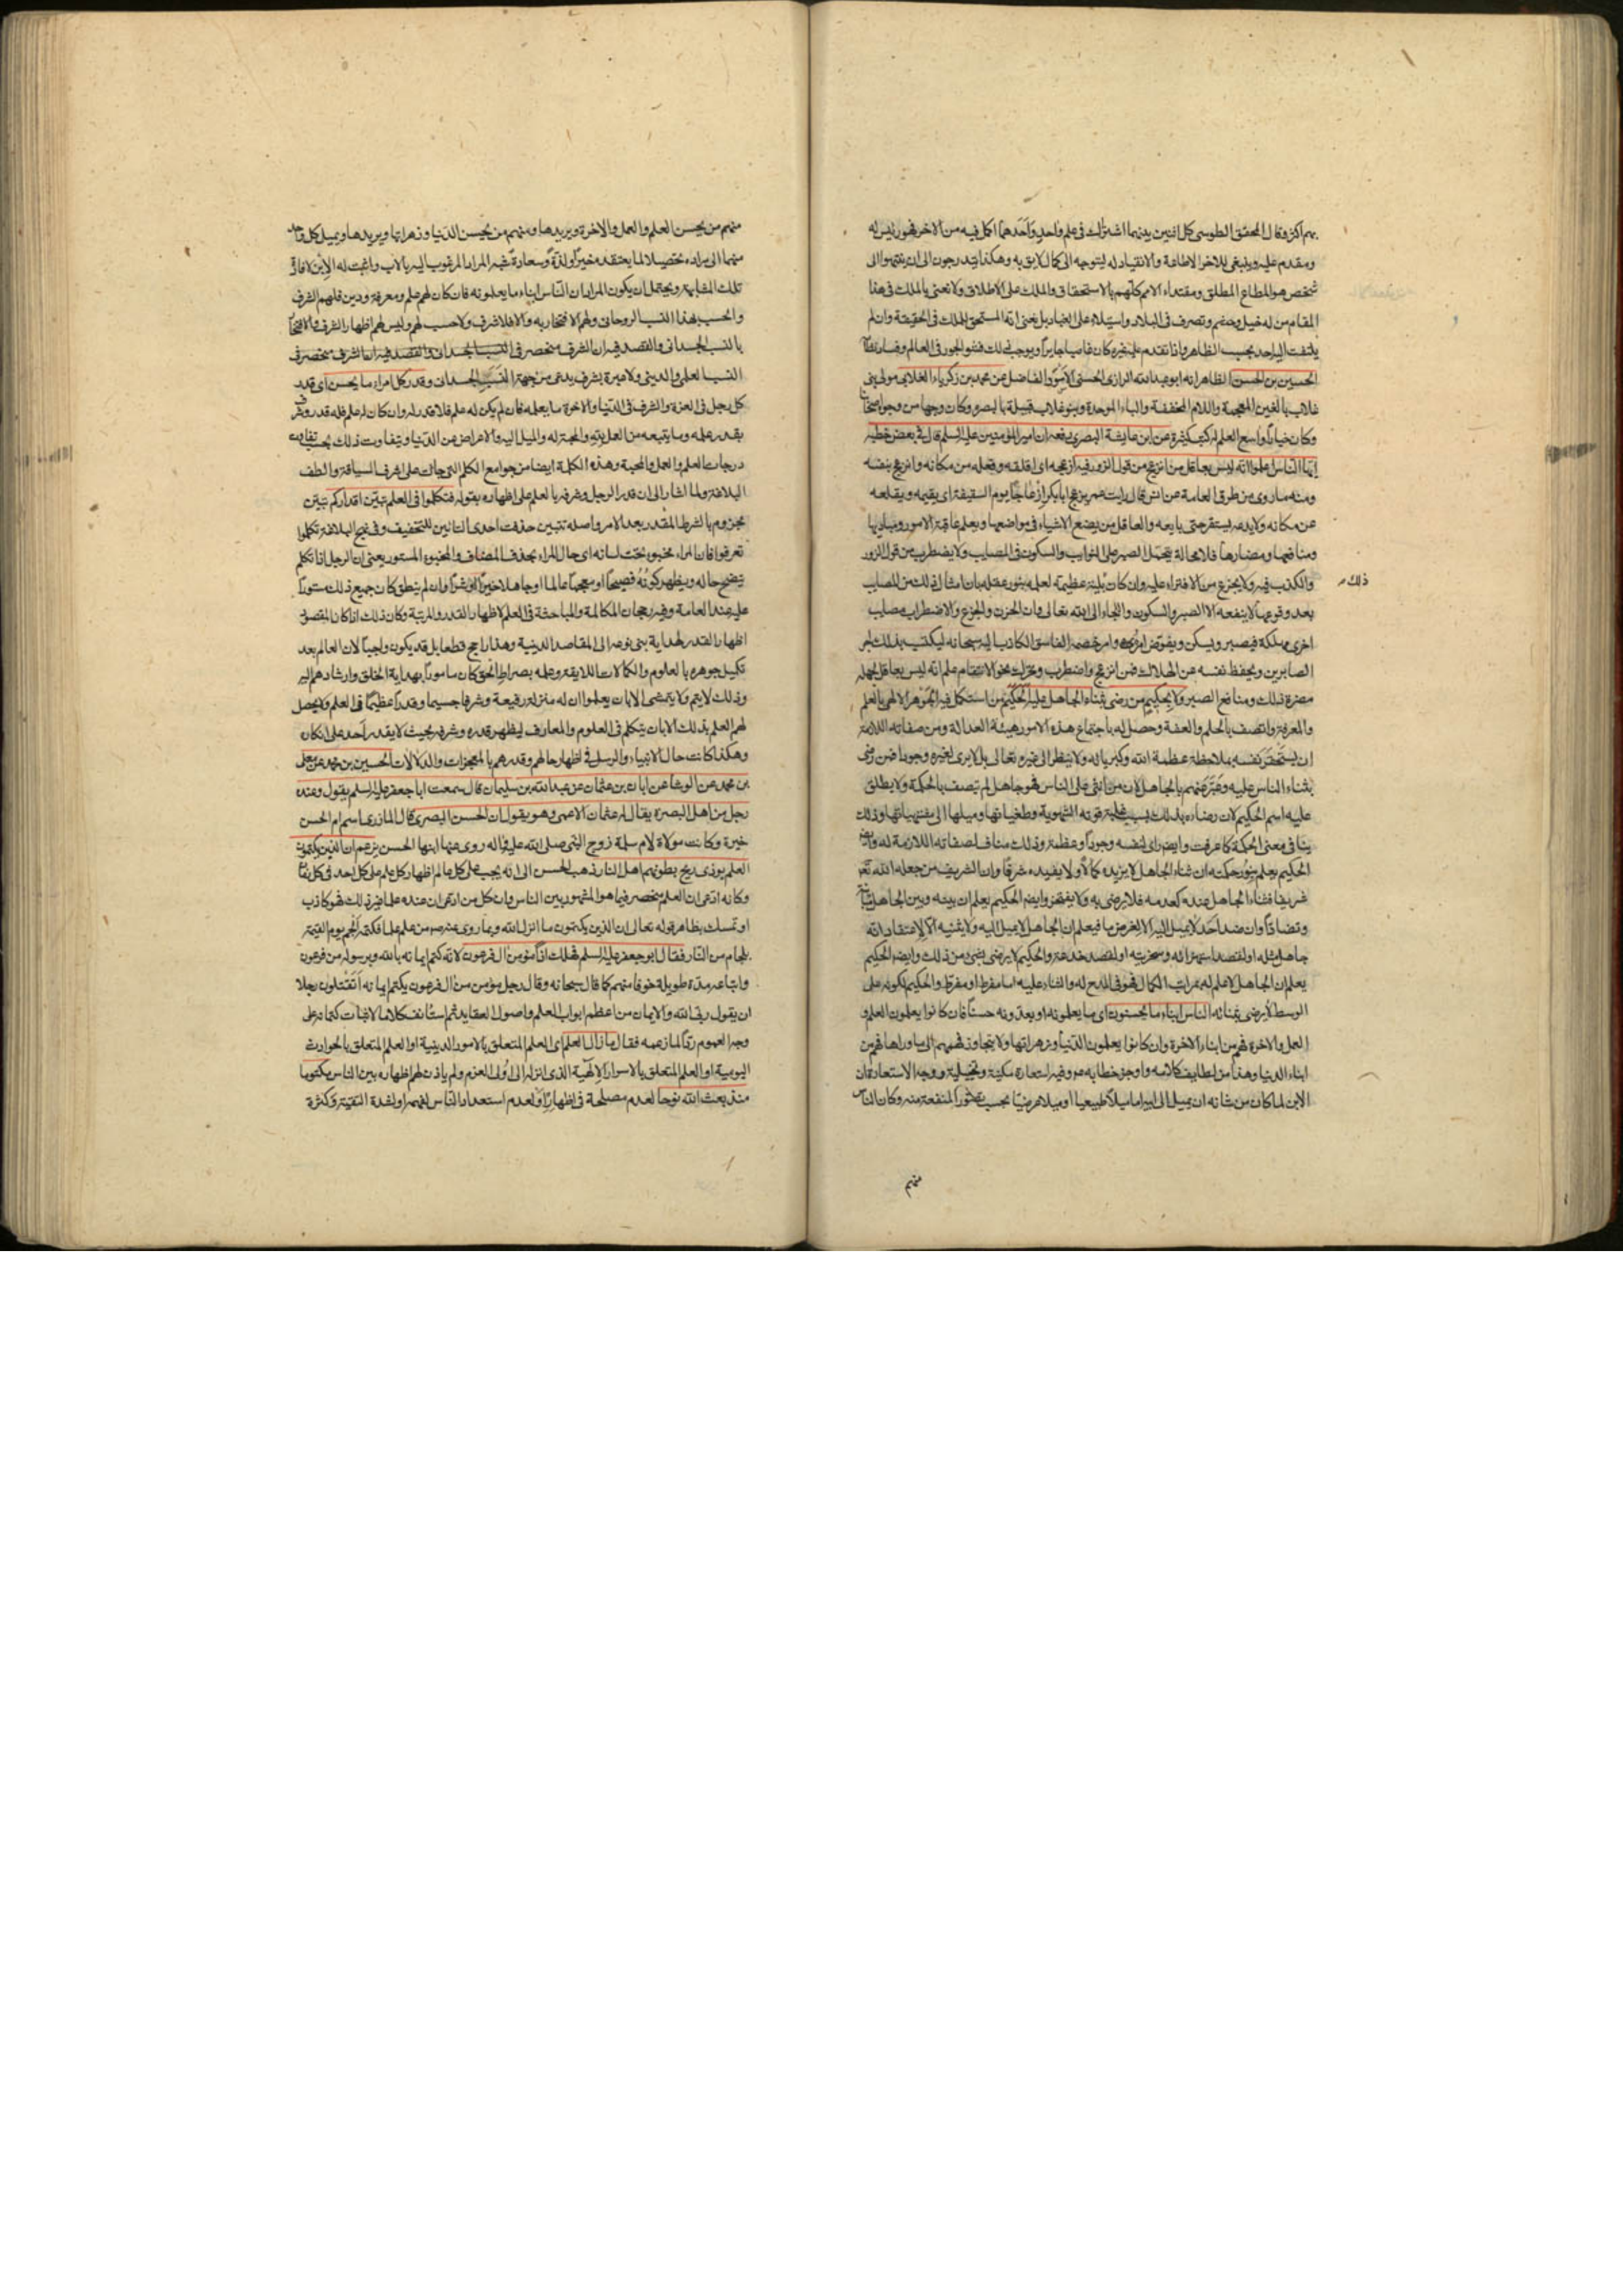 بهم اكثر وقال المحقق الطوسى كل اثنين بينهما اشتراك فى علم واحد واحدهما اكمل فيه من الاخر فهو رئيس له
ومقدم عليه وينبغى للاخر الاطاعة والانقياد له ليتوجه الى كمال لايق به وهكذا يتدرجون الى ان ينتهوا الى
شخص هو المطاع المطلق ومقتداء الامم كلهم بالاستحقاق والملك على الاطلاق ولا نعنى بالملك فى هذا
المقام من له خيل وحشم وتصرف فى البلاد واستيلاء على العباد بل نعنى انه المستحق للملك فى الحقيقة وان لم
يلتفت اليه احد بحسب الظاهر واذا تقدم عليه غيره كان غاصبا جابرا ويوجب ذلك فشو الجور فى العالم وفساد نظامه
الحسين بن الحسن الظاهر انه ابو عبد الله الرازى الحسنى الاسود الفاضل عن محمد بن زكرياء الغلابى مولى بنى
غلاب بالغين المعجمة واللام المخففة والباء الموحدة وبنو غلاب قبيلة بالبصرة وكان وجها من وجوه اصحابنا
وكان خيارا واسع العلم له كتب كثيرة عن ابن عايشة البصرى رفعه ان امير المؤمنين عليه السلم قال فى بعض خطبه
ايها الناس اعلموا انه ليس بعاقل من انزعج من قول الزور فيه ازعجه اى اقلقه وقلعه من مكانه وانزعج بنفسه
ومنه ما روى من طرق العامة عن انس قال رايت عمر يزعج ابا بكر ازعاجا يوم السقيفة اى يقيمه ويقلعه
عن مكانه ولا يدعه يستقر حتى بايعه والعاقل من يضع الاشياء فى مواضعها ويعلم عاقبة الامور ومباديها
ومنافعها ومضارها فلا محالة يتحمل الصبر على النوايب والسكون فى المصايب ولا يضطرب من قول الزور
والكذب فيه ولا يجزع من الافتراء عليه وان كان بلية عظيمة لعلمه بنور عقله بان امثال ذلك من المصايب
ذلك
بعد وقوعها لا ينفعه الا الصبر والسكون والتجاء الى الله تعالى وان الحزن والجزع والاضطراب مصايب
اخرى مهلكة فيصبر ويسكن ويفوض امره وامر خصمه الفاسق الكاذب اليه سبحانه ليكتسب بذلك اجر
الصابرين ويحفظ نفسه عن الهلاك فمن انزعج واضطرب وتحرك نحو الانتقام علم انه ليس بعاقل لجهله
مضرة ذلك ومنافع الصبر ولا بحكيم من رضى بثناء الجاهل عليه الحكيم من استكمل فيه الجوهر الالهى بالعلم
والمعرفة واتصف بالحلم والعفة وحصل له باجتماع هذه الامور هيئة العدالة ومن صفاته اللازمة
ان يستحقر نفسه بملاحظة عظمة الله وكبريائه ولا ينظر الى غيره تعالى بل لا يرى لغيره وجودا فمن رضى
بثناء الناس عليه وعبر عنهم بالجاهل لان من اثنى على الناس فهو جاهل لم يتصف بالحكمة ولا يطلق
عليه اسم الحكيم لان رضاءه بذلك بسبب غلبة قوته الشهوية وطغيانها وميلها الى مشتهياتها وذلك
ينافى معنى الحكمة كما عرفت وايضا راى لنفسه وجودا وعظمة وذلك مناف لصفاته اللازمة له وايضا
الحكيم يعلم بنور حكمته ان ثناء الجاهل لا يزيده كمالا ولا يفيده شرفا وان الشريف من جعله الله تعالى
شريفا فثناء الجاهل عنده كعدمه فلا يرضى به ولا يفتخر وايضا الحكيم يعلم ان بينه وبين الجاهل تباينا
وتضادا وان ضد احد لا يميل اليه الا لغرض ما فيعلم ان الجاهل لا يميل اليه ولا يثنيه الا لاعتقاد انه
جاهل مثله او لقصد استهزائه وسخريته او لقصد خدعته والحكيم لا يرضى بشىء من ذلك وايضا الحكيم
يعلم ان الجاهل لا علم له بمراتب الكمال فهو فى المدح له والثناء عليه اما مفرط او مفرط والحكيم لكونه على
الوسط لا يرضى بثنائه الناس ابناء ما يحسنون اى ما يعلمونه او يعدونه حسنا فان كانوا يعلمون العلم و
العمل والاخرة فهم من ابناء الاخرة وان كانوا يعلمون الدنيا وزهراتها ولا يتجاوز فهمهم الى ما وراها فهم من
ابناء الدنيا وهذا من لطايف كلامه واوجز خطابه عم وفيه استعارة مكنية وتخييلية ووجه الاستعارة ان
الابن لما كان من شانه ان يميل الى ابيه اما ميلا طبيعيا او ميلا عرضيا بحسب تصور المنفعة منه وكان الناس
منهم
منهم من يحسن العلم والعمل والاخرة ويريدها ومنهم من يحسن الدنيا وزهراتها ويريدها ويميل كل واحد
منهما الى مراده تحصيلا لما يعتقده خيرا ولذة وسعادة شبه المراد المرغوب اليه بالاب واثبت له الابن لافادة
تلك المشابهة ويحتمل ان يكون المراد ان الناس ابناء ما يعلمونه فان كان لهم علم ومعرفة ودين فلهم الشرف
والحسب بهذا النسب الروحانى ولهم الافتخار به والا فلا شرف ولا حسب لهم وليس لهم اظهار الشرف والافتخار
بالنسب الجسدانى والقصد فيه ان الشرف منحصر فى النسب الجسدانى والقصد فيه ان الشرف منحصر فى
النسب العلمى والدينى ولا عبرة بشرف يدعى من جهة النسب الجسدانى وقدر كل امرء ما يحسن اى قدر
كل رجل فى العزة والشرف فى الدنيا والاخرة ما يعلمه فان لم يكن له علم فلا قدر له وان كان له علم فله قدر وشرف
بقدر علمه وما يتبعه من العمل به والمحبة له والميل اليه والاعراض عن الدنيا ويتفاوت ذلك بحسب تفاوت
درجات العلم والعمل والمحبة وهذه الكلمة ايضا من جوامع الكلم التى جائت على اشرف السياقة والطف
البلاغة ولما اشار الى ان قدر الرجل وشرفه بالعلم على اظهاره بقوله فتكلموا فى العلم تبين اقداركم تبين
مجزوم بالشرط المقدر بعد الامر واصله تتبين حذفت احدى التائين للتخفيف وفى نهج البلاغة تكلموا
تعرفوا فان المرء مخبو تحت لسانه اى حال المرء بحذف المضاف والمخبوء المستور يعنى ان الرجل اذا تكلم
يتضح حاله ويظهر كونه فصيحا او معجما عالما او جاهلا خيرا او شرا وان لم ينطق كان جميع ذلك مستورا
عليه عند العامة وفيه رجحان المكالمة والمباحثة فى العلم لاظهار القدر والمرتبة وكان ذلك اذا كان المقصود
اظهار القدر لهداية بنى نوعه الى المقاصد الدينية وهذا راجح قطعا بل قد يكون واجبا لان العالم بعد
تكميل جوهره بالعلوم والكمالات اللايقة وعلمه بصراط الحق كان مامورا بهداية الخلق وارشادهم اليه
وذلك لا يتم ولا يتمشى الا بان يعلموا ان له منزلة رفيعة وشرفا جسيما وقدرا عظيما فى العلم ولا يحصل
لهم العلم بذلك الا بان يتكلم فى العلوم والمعارف ليظهر قدره وشرفه بحيث لا يقدر احد على انكاره
وهكذا كانت حال الانبياء والرسل فى اظهار حالهم وقدرهم بالمعجزات والدلالات الحسين بن محمد عن معلى
بن محمد عن الوشا عن ابان بن عثمان عن عبد الله بن سليمان قال سمعت ابا جعفر عليه السلم يقول وعنده
رجل من اهل البصرة يقال له عثمان الاعمى وهو يقول ان الحسن البصرى قال المازرى اسم ام الحسن
خيرة وكانت مولاة لام سلمة زوج النبى صلى الله عليه واله روى عنها ابنها الحسن يزعم ان الذين يكتمون
العلم يوذى ريح بطونهم اهل النار ذهب الحسن الى انه يجب على كل عالم اظهار كل علم على كل احد فى كل زمان
وكانه ادعى ان العلم منحصر فيما هو المشهور بين الناس وان كل من ادعى ان عنده علما غير ذلك فهو كاذب
او تمسك بظاهر قوله تعالى ان الذين يكتمون ما انزل الله وبما روى عنه ص من علم علما فكتمه الجم يوم القيمة
بلجام من النار فقال ابو جعفر عليه السلم فهلك اذا مؤمن ال فرعون لانه كتم ايمانه بالله وبرسوله من فرعون
واتباعه مدة طويلة خوفا منهم كما قال سبحانه وقال رجل مؤمن من ال فرعون يكتم ايمانه اتقتلون رجلا
ان يقول ربى الله والايمان من اعظم ابواب العلم واصول العقايد ثم استانف كلاما لاثبات كتمانه على
وجه العموم ردا لما زعمه فقال ما زال العلم اى العلم المتعلق بالامور الدينية او العلم المتعلق بالحوادث
اليومية او العلم المتعلق بالاسرار الالهية الذى انزله الى اولى العزم ولم ياذن لهم اظهاره بين الناس مكتوما
منذ بعث الله نوحا لعدم مصلحة فى اظهاره او لعدم استعداد الناس لفهمه او لشدة التقية وكثرة